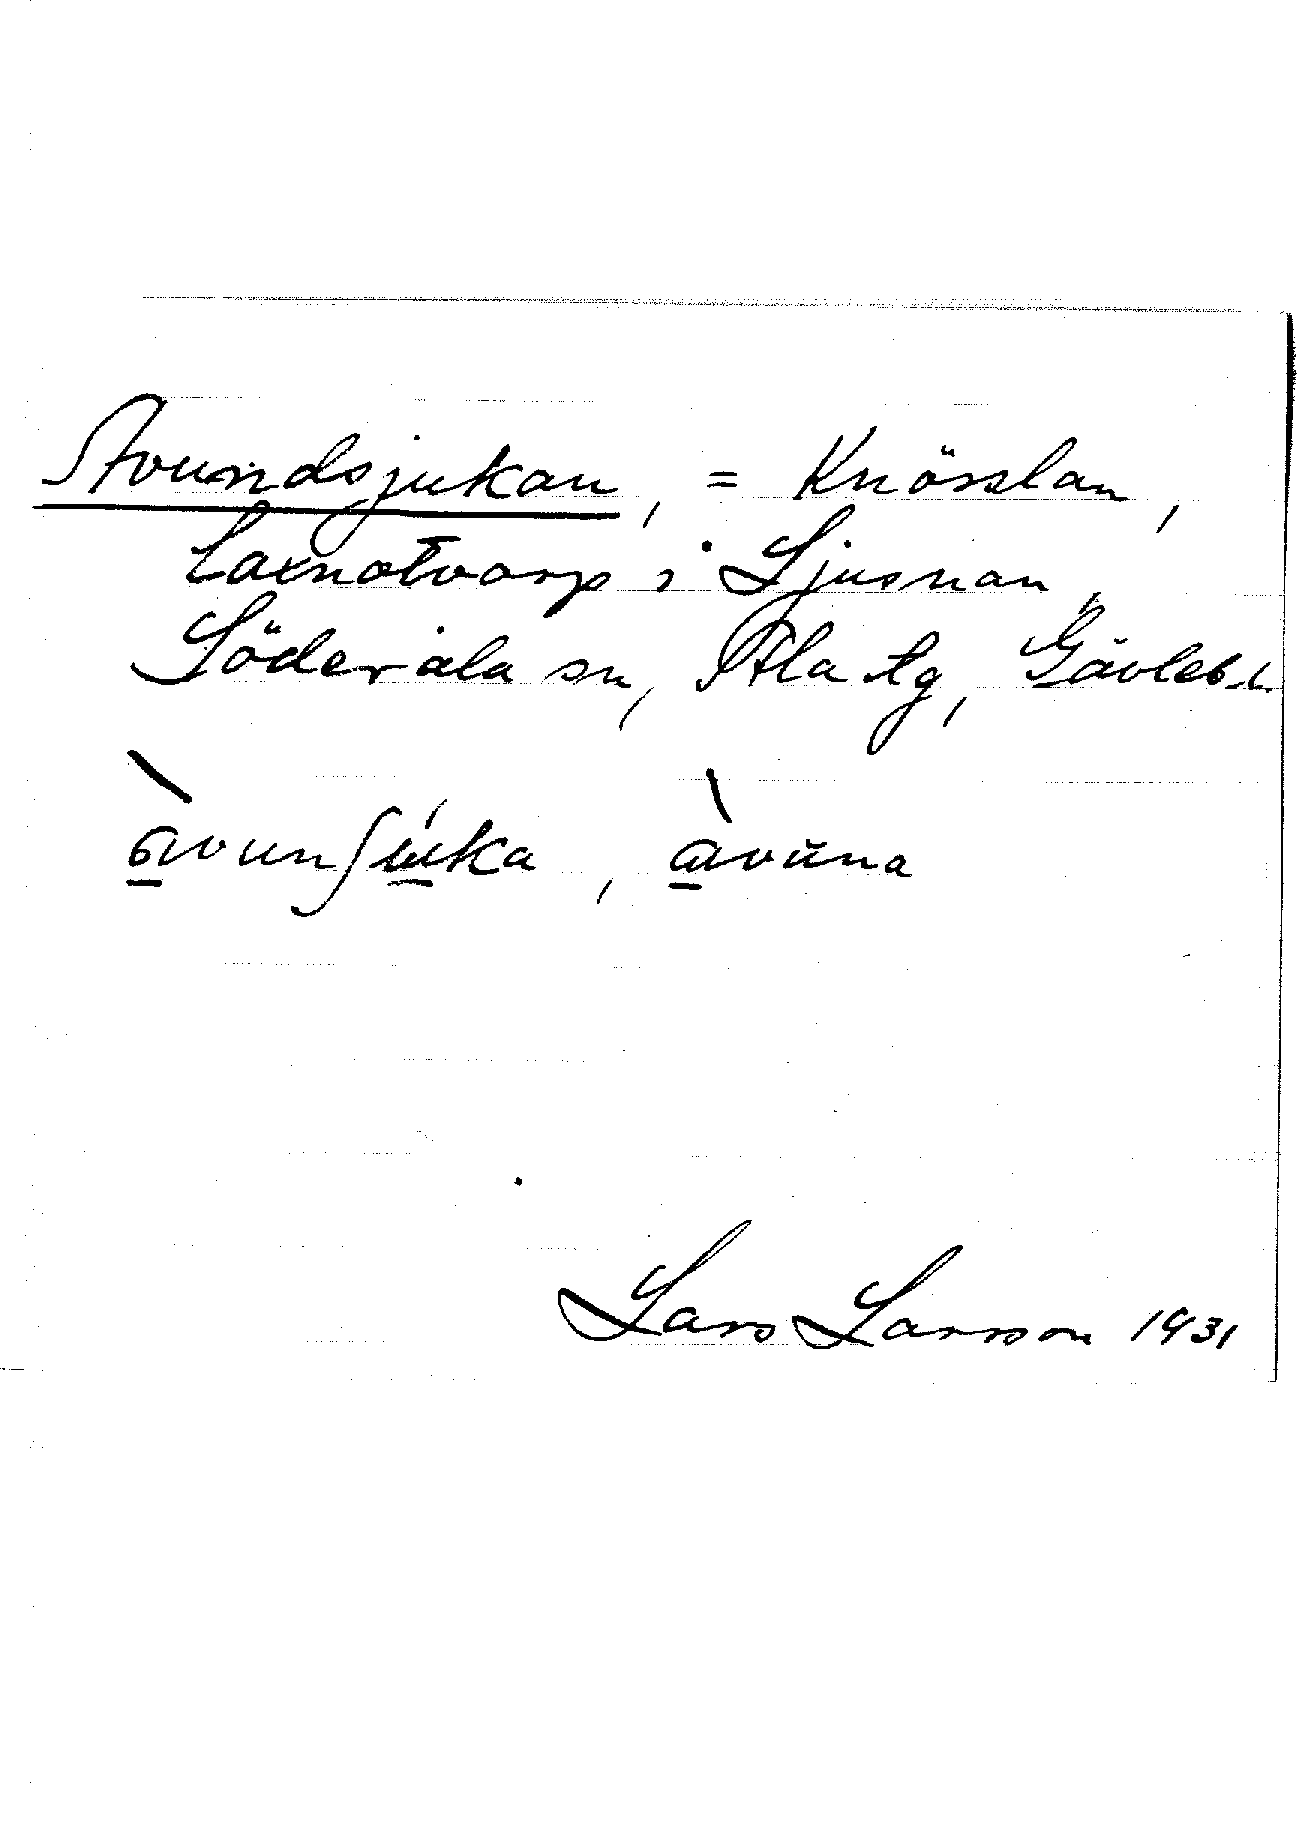 Avundsjukan, = Knösslan,
laxnotvarp i Ljusnan,
Söderala sn, Ala tg, Gävleb. l.
àvunʃúka, àvūna
Lars Larsson 1931